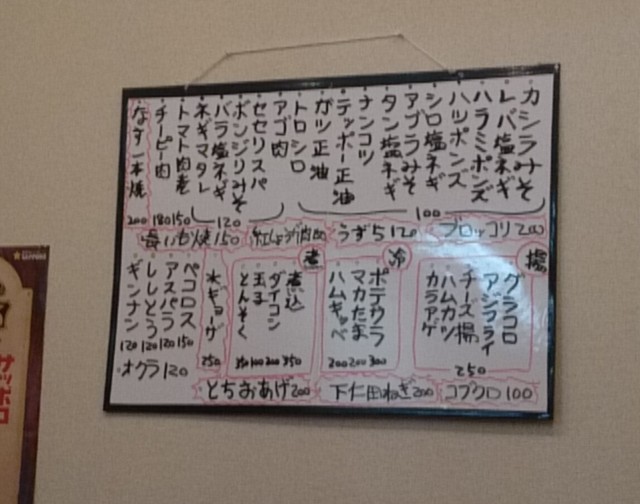 カシラみそ
レバ塩ネギ
ハラミポンズ
ハツポンズ
シロ塩ネギ
アブラみそ
タン塩ネギ
ナンコツ
テッポー正油
ガツ正油
トロシロ
100
アゴ肉
セセリスパ
ボンジリみそ
バラ塩ネギ
ネギマタレ
120
トマト肉巻 150
チーピー肉 180
なす一本焼 200
ブロッコリ 200
うずら 120
長いも焼 150
揚
グラコロ
アジフライ
チーズ揚
ハムカツ
カラアゲ
250
冷
ポテサラ 300
マカたま 200
ハムキッベ 200
煮
煮込 350
ダイコン 200
玉子 100
とんそく 350
水ギョーザ 250
ペコロス 150
アスパラ 120
ししとう 120
ギンナン 120
オクラ 120
とちおあげ 200
下仁田ねぎ 200
コブクロ 100
サッポロ